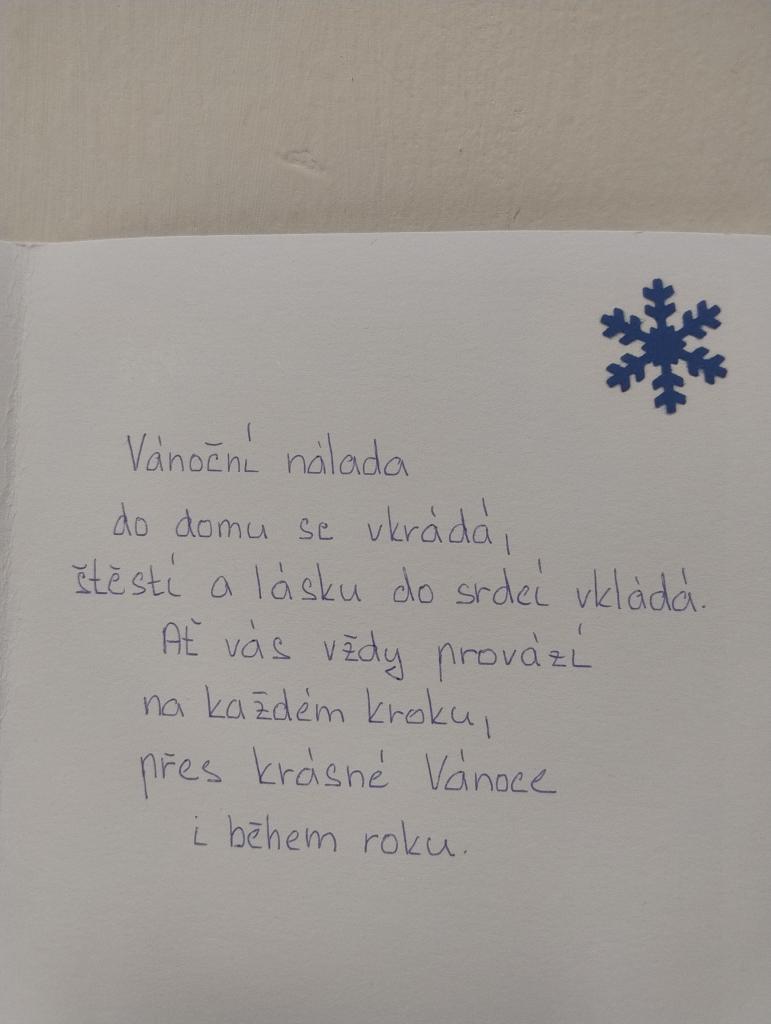 Vánoční nálada
do domu se vkrádá,
štěstí a lásku do srdcí vkládá.
Ať vás vždy provází
na každém kroku,
přes krásné Vánoce
i během roku.